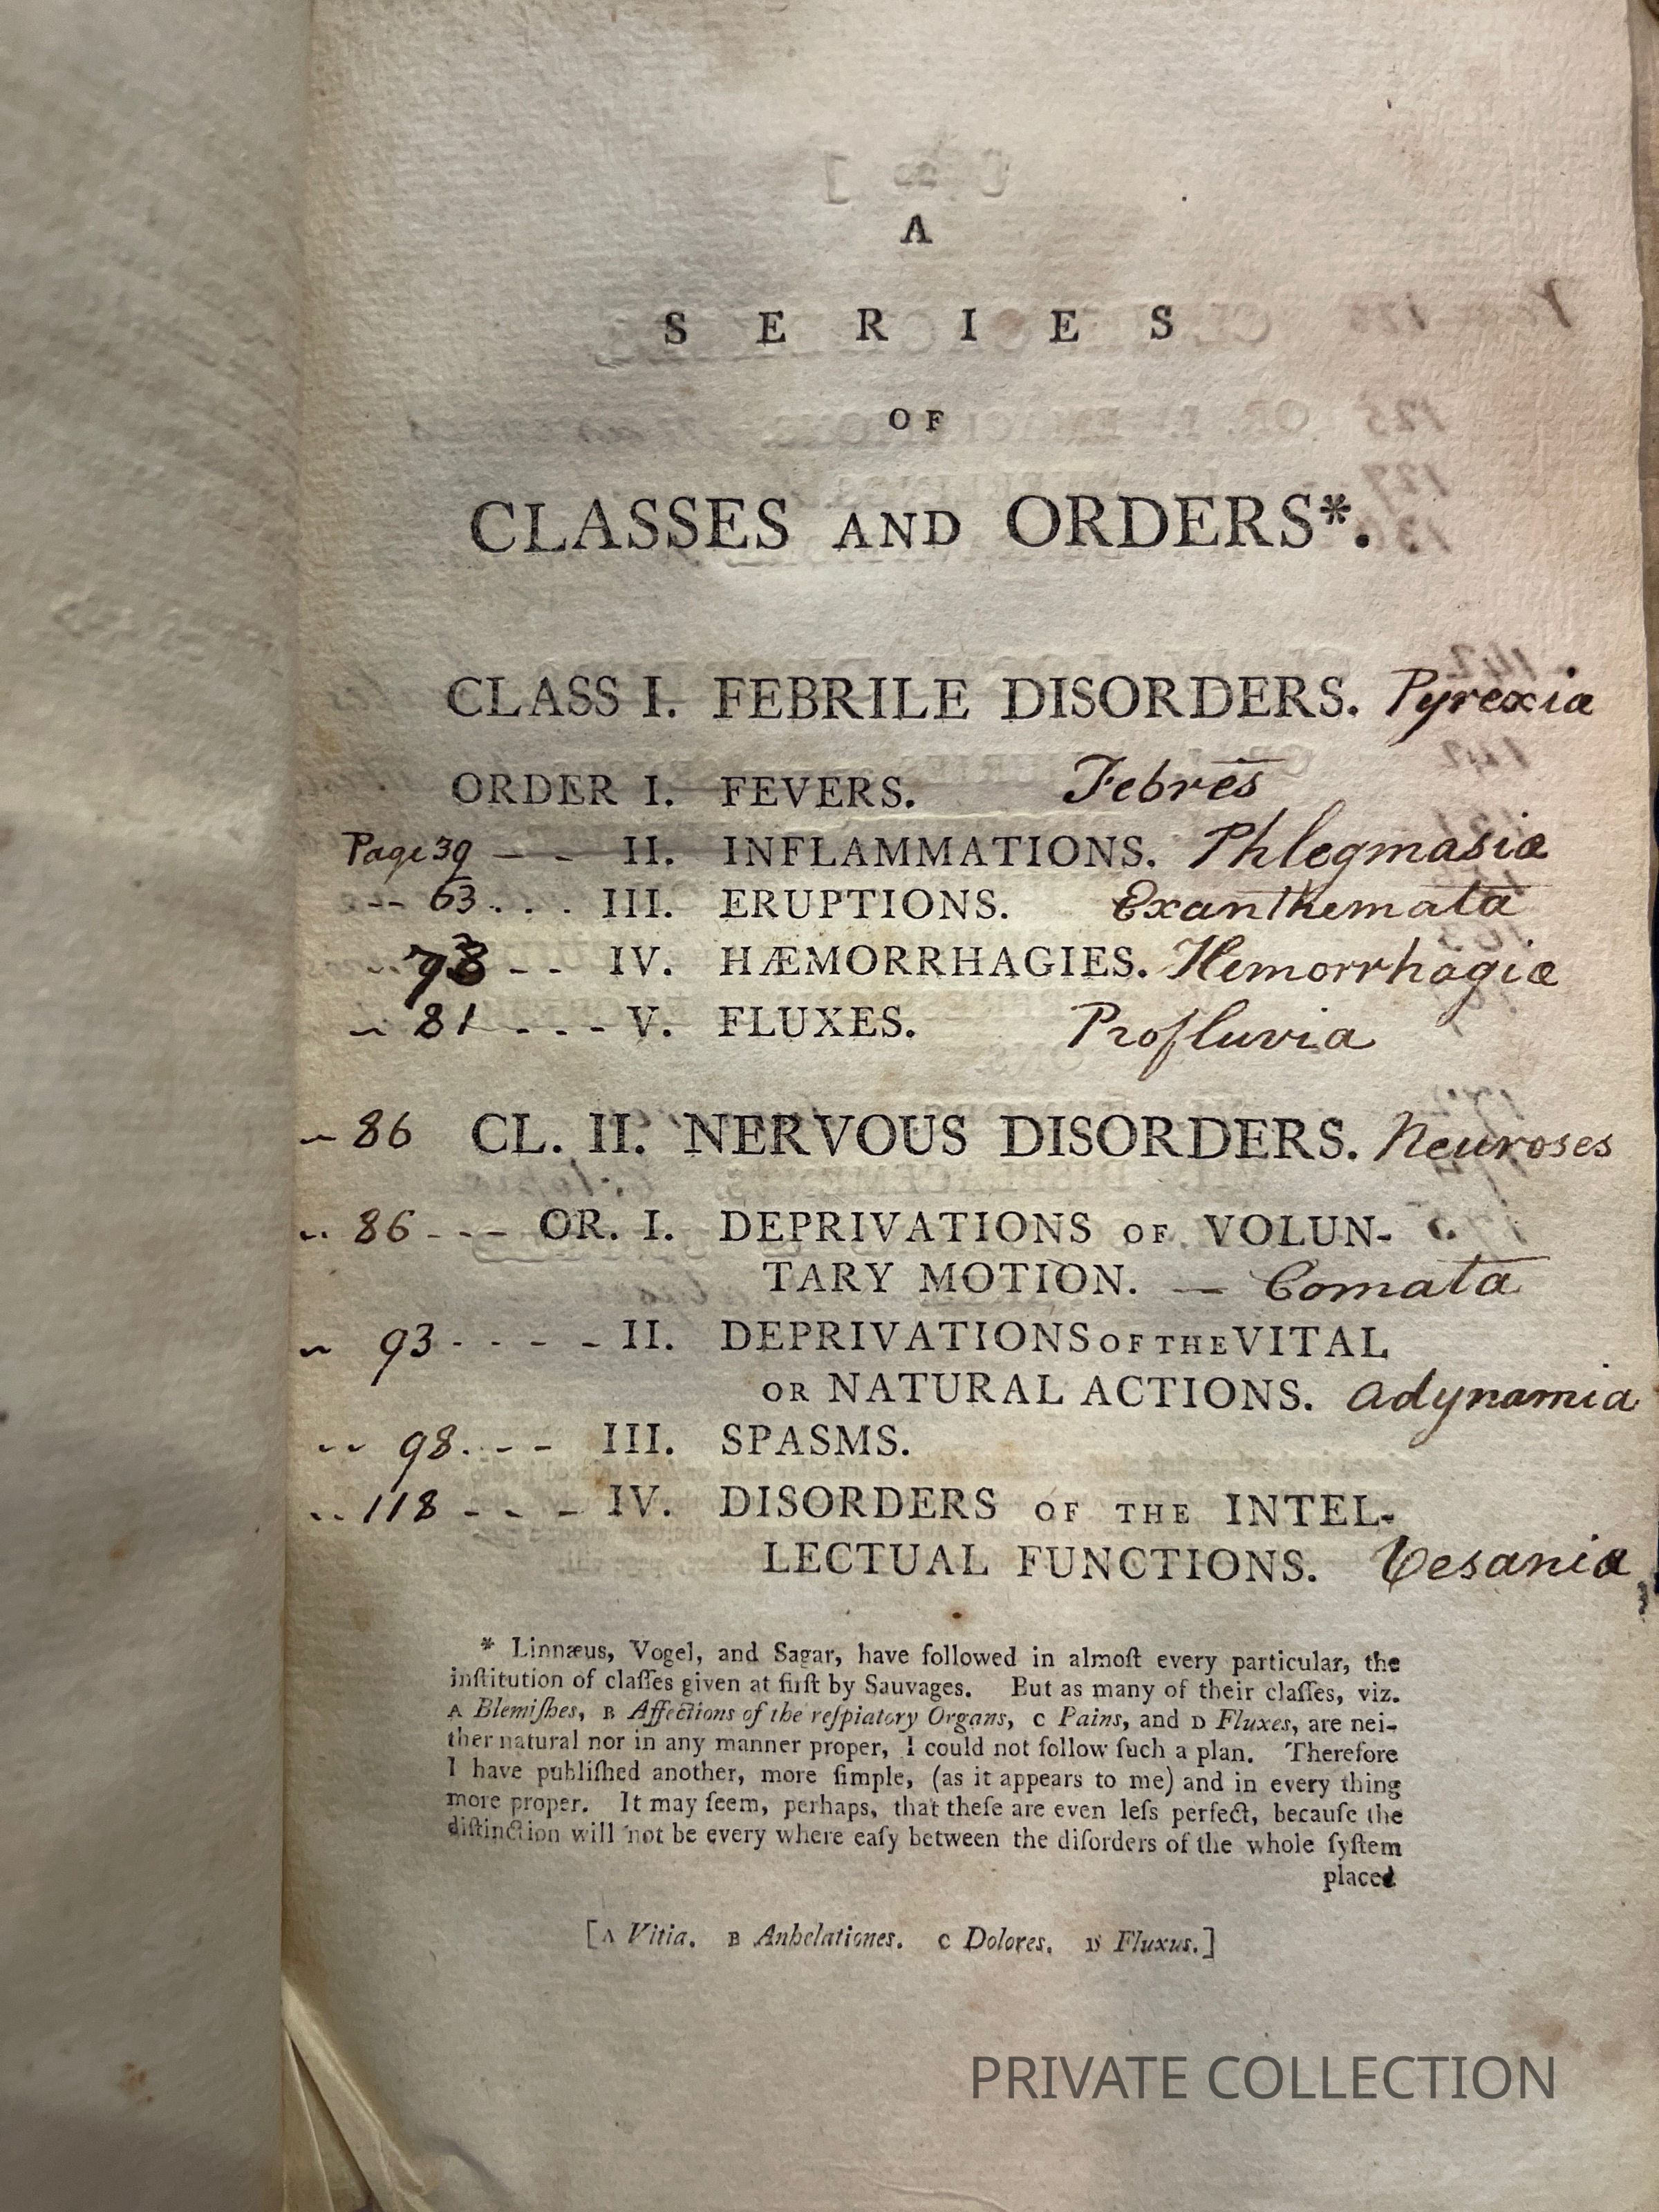 A
SERIES
OF
CLASSES AND ORDERS*.
CLASS I. FEBRILE DISORDERS. Pyrexiæ
ORDER I. FEVERS. Febres
Page 39 — - II. INFLAMMATIONS. Phlegmasiæ
-- 63 . . . III. ERUPTIONS. Exanthemata
-- 78 - - IV. HÆMORRHAGIES. Hemorrhagiæ
-- 81 - - - V. FLUXES. Profluvia
- 86 CL. II. NERVOUS DISORDERS. Neuroses
-- 86 - - - OR. I. DEPRIVATIONS OF VOLUN-
TARY MOTION. — Comata
- 93 - - - - II. DEPRIVATIONS OF THE VITAL
OR NATURAL ACTIONS. Adynamia
-- 98. - - III. SPASMS.
-- 118 - - - IV. DISORDERS OF THE INTEL-
LECTUAL FUNCTIONS. Vesaniæ
* Linnæus, Vogel, and Sagar, have followed in almoſt every particular, the
inſtitution of claſſes given at firſt by Sauvages. But as many of their claſſes, viz.
A Blemiſhes, B Affections of the reſpiatory Organs, C Pains, and D Fluxes, are nei-
ther natural nor in any manner proper, I could not follow ſuch a plan. Therefore
I have publiſhed another, more ſimple, (as it appears to me) and in every thing
more proper. It may ſeem, perhaps, that theſe are even leſs perfect, becauſe the
diſtinction will not be every where eaſy between the diſorders of the whole ſyſtem
placed
[A Vitia. B Anhelationes. C Dolores. D Fluxus.]
PRIVATE COLLECTION